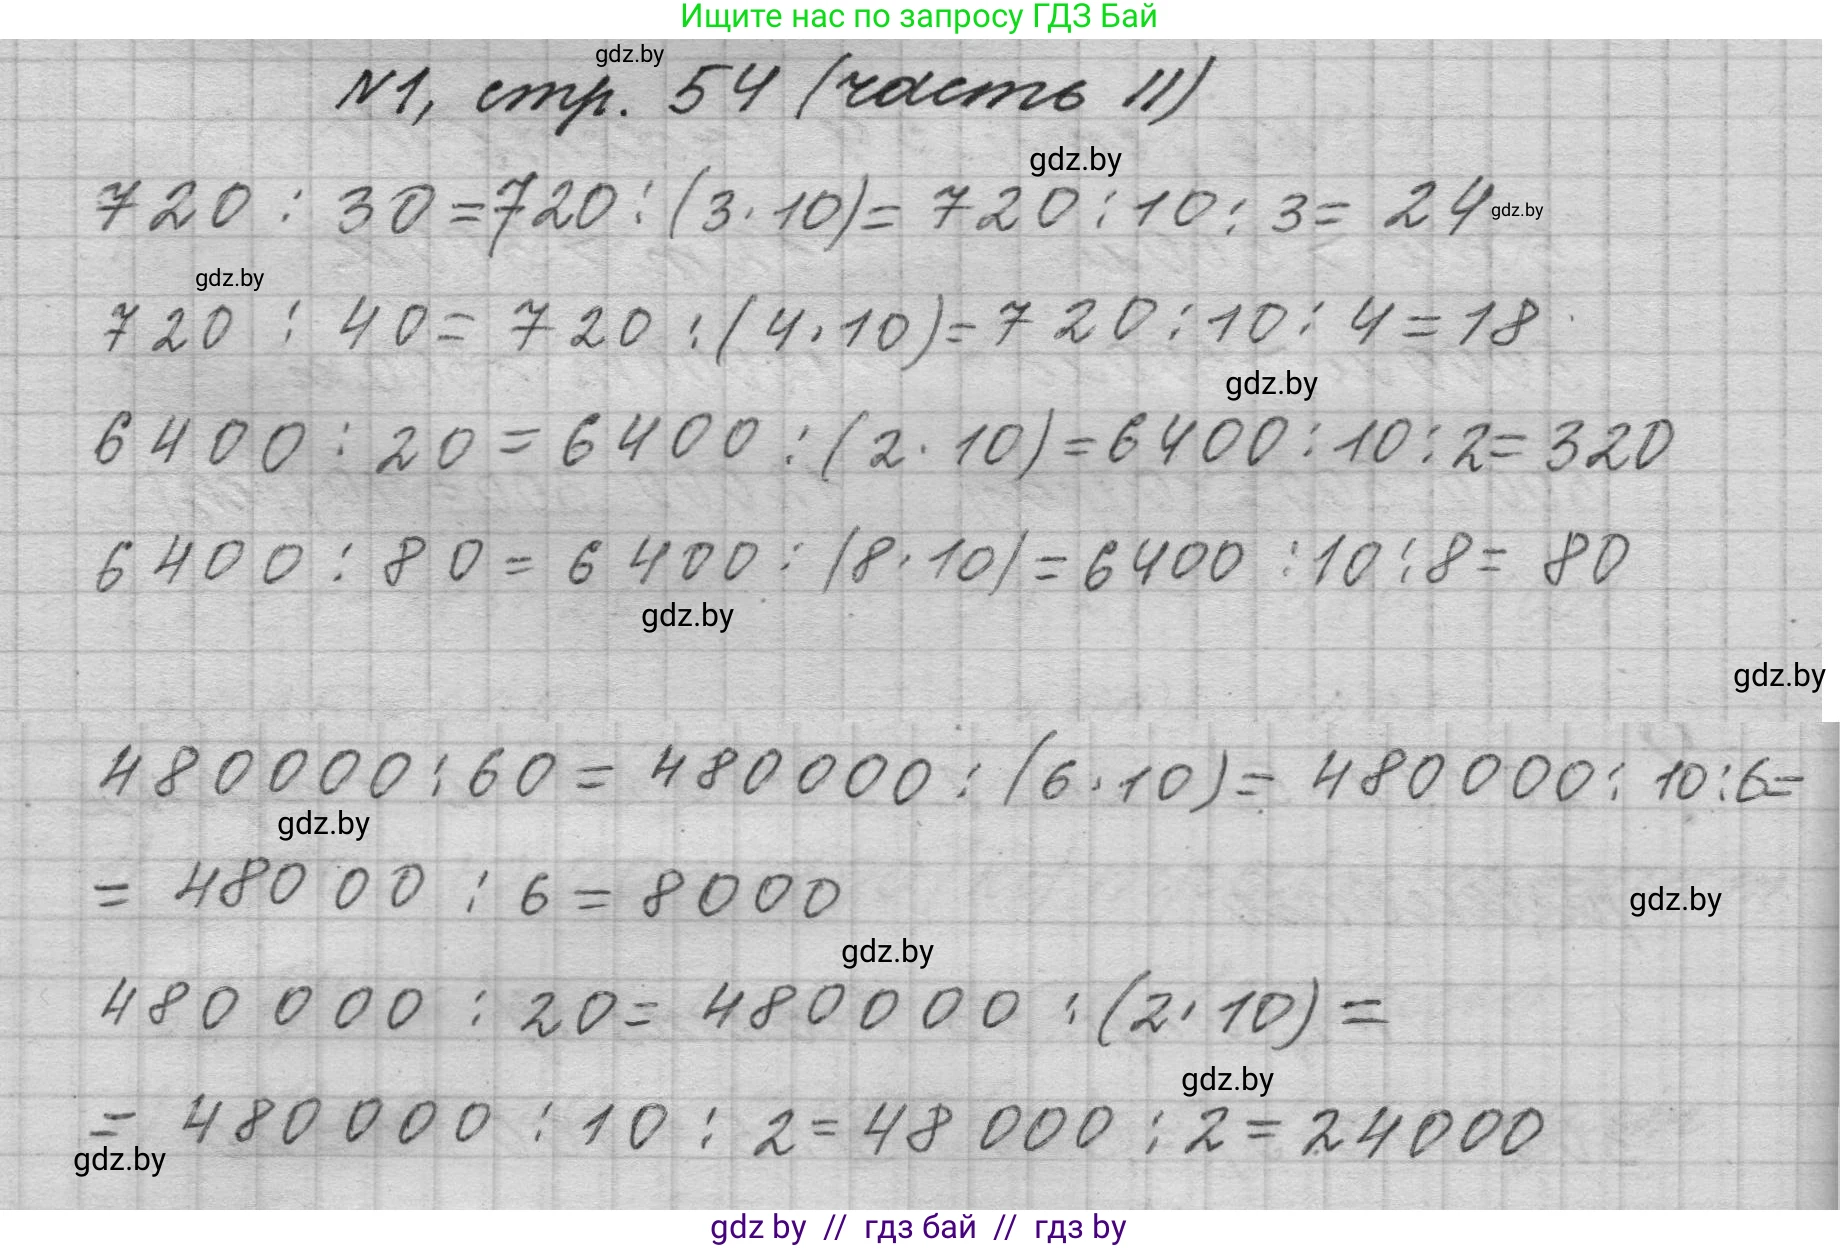 Ищите нас по запросу ГДЗ Бай
gdz.by
№1, стр. 54 (часть II)
gdz.by
720 : 30 = 720 : (3 · 10) = 720 : 10 : 3 = 24
gdz.by
gdz.by
720 : 40 = 720 : (4 · 10) = 720 : 10 : 4 = 18
gdz.by
6400 : 20 = 6400 : (2 · 10) = 6400 : 10 : 2 = 320
6400 : 80 = 6400 : (8 · 10) = 6400 : 10 : 8 = 80
gdz.by
gdz.by
480000 : 60 = 480000 : (6 · 10) = 480000 : 10 : 6 =
gdz.by
= 48000 : 6 = 8000
gdz.by
gdz.by
480000 : 20 = 480000 : (2 · 10) =
gdz.by
= 480000 : 10 : 2 = 48000 : 2 = 24000
gdz.by
gdz by // гдз бай // гдз by